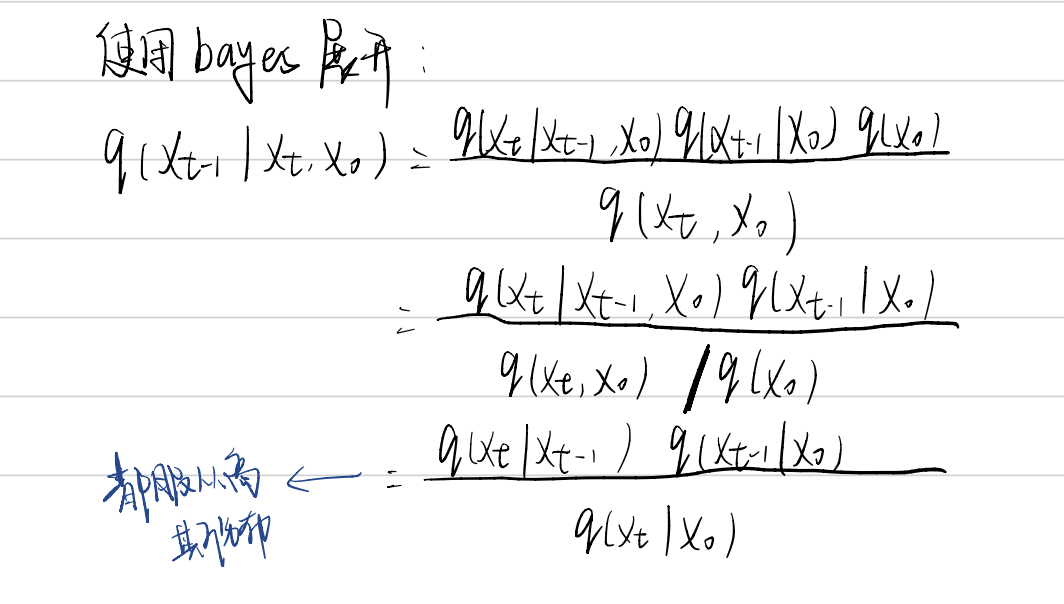 使用 bayes 展开:
q(x_{t-1} | x_t, x_0) = \frac{q(x_t | x_{t-1}, x_0) q(x_{t-1} | x_0) q(x_0)}{q(x_t, x_0)}
= \frac{q(x_t | x_{t-1}, x_0) q(x_{t-1} | x_0)}{q(x_t, x_0) / q(x_0)}
都服从高 ← = \frac{q(x_t | x_{t-1}) q(x_{t-1} | x_0)}{q(x_t | x_0)}
斯分布